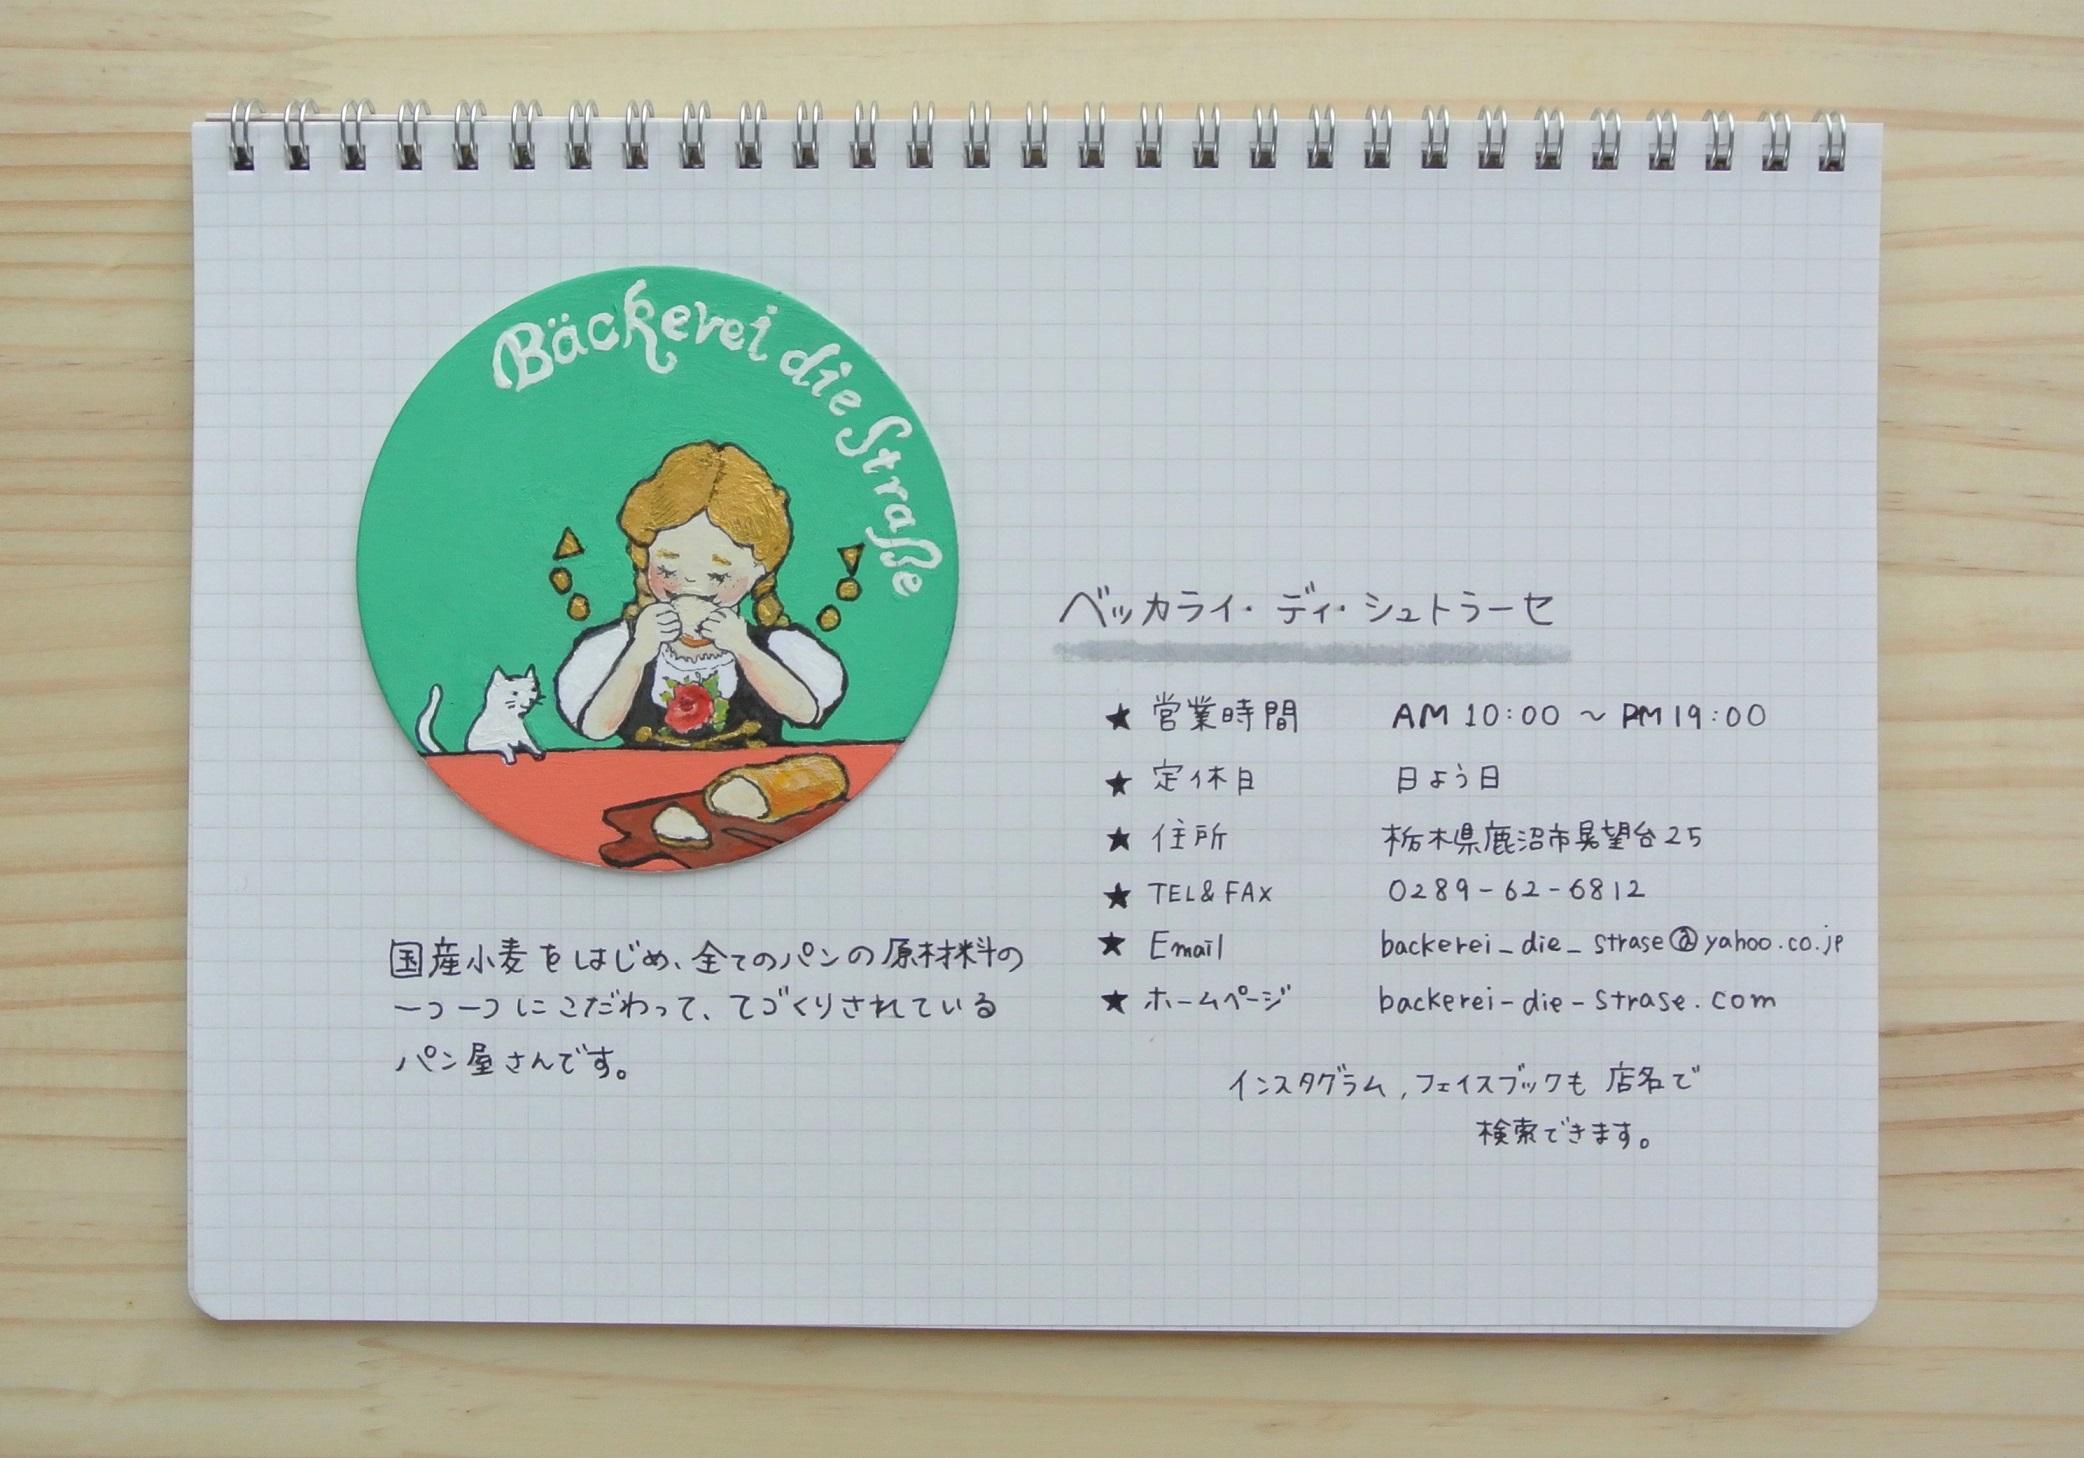 Bäckerei die Straße
国産小麦をはじめ、全てのパンの原材料の
一つ一つにこだわって、てづくりされている
パン屋さんです。
ベッカライ・ディ・シュトラーセ
★ 営業時間 AM 10:00 ～ PM 19:00
★ 定休日 日よう日
★ 住所 栃木県鹿沼市晃望台25
★ TEL&FAX 0289-62-6812
★ Email backerei_die_strase@yahoo.co.jp
★ ホームページ backerei-die-strase.com
インスタグラム,フェイスブックも店名で
検索できます。